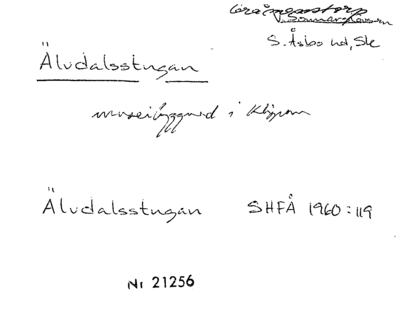 S. Åsbo hd, Sk
Älvdalsstugan
museibyggnad i Klippan
Älvdalsstugan SHFÅ 1960:119
Nr 21256